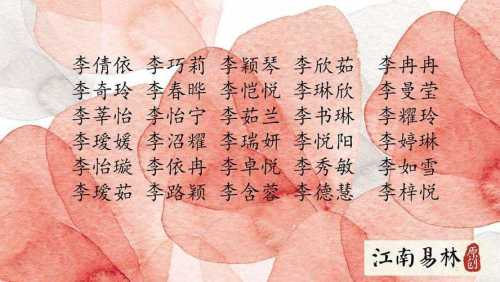 李倩依 李巧莉 李颖琴 李欣茹 李冉冉
李奇玲 李春晔 李恺悦 李琳欣 李曼莹
李莘怡 李怡宁 李茹兰 李书琳 李耀玲
李瑷媛 李沼耀 李瑞妍 李悦阳 李婷琳
李怡璇 李依冉 李卓悦 李秀敏 李如雪
李瑷茹 李路颖 李含蓉 李德慧 李梓悦
江南易林
原创